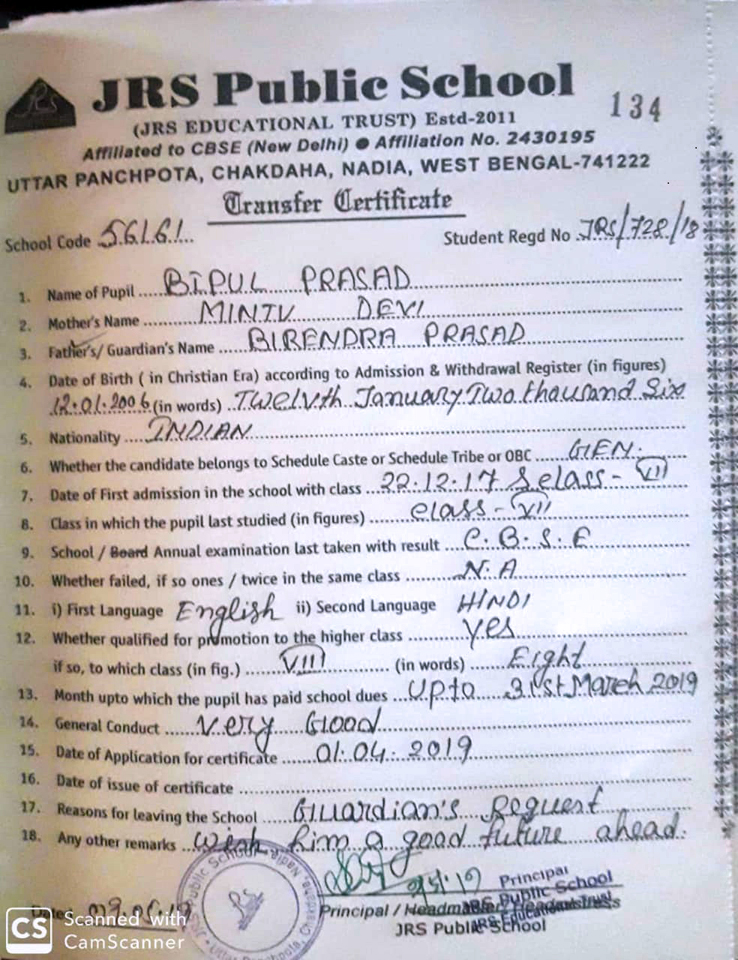 JRS Public School
134
(JRS EDUCATIONAL TRUST) Estd-2011
Affiliated to CBSE (New Delhi) ● Affiliation No. 2430195
UTTAR PANCHPOTA, CHAKDAHA, NADIA, WEST BENGAL-741222
Transfer Certificate
School Code 56161 Student Regd No JRS/728/18
1. Name of Pupil BIPUL PRASAD
2. Mother's Name MINTU DEVI
3. Father's/ Guardian's Name BIRENDRA PRASAD
4. Date of Birth ( in Christian Era) according to Admission & Withdrawal Register (in figures)
12.01.2006 (in words) Twelvth January Two thousand Six
5. Nationality INDIAN
6. Whether the candidate belongs to Schedule Caste or Schedule Tribe or OBC GEN.
7. Date of First admission in the school with class 22.12.17 class-VII
8. Class in which the pupil last studied (in figures) class-VII
9. School / Board Annual examination last taken with result C.B.S.E
10. Whether failed, if so ones / twice in the same class N.A
11. i) First Language English ii) Second Language HINDI
12. Whether qualified for promotion to the higher class yes
if so, to which class (in fig.) VIII (in words) Eight
13. Month upto which the pupil has paid school dues Upto 31st March 2019
14. General Conduct very Good
15. Date of Application for certificate 01.04.2019
16. Date of issue of certificate
17. Reasons for leaving the School Guardian's Request
18. Any other remarks Wish him a good future ahead.
Principal
JRS Public School
JRS Educational Trust
Principal / Headmaster / Headmistress
JRS Public School
CS Scanned with
CamScanner